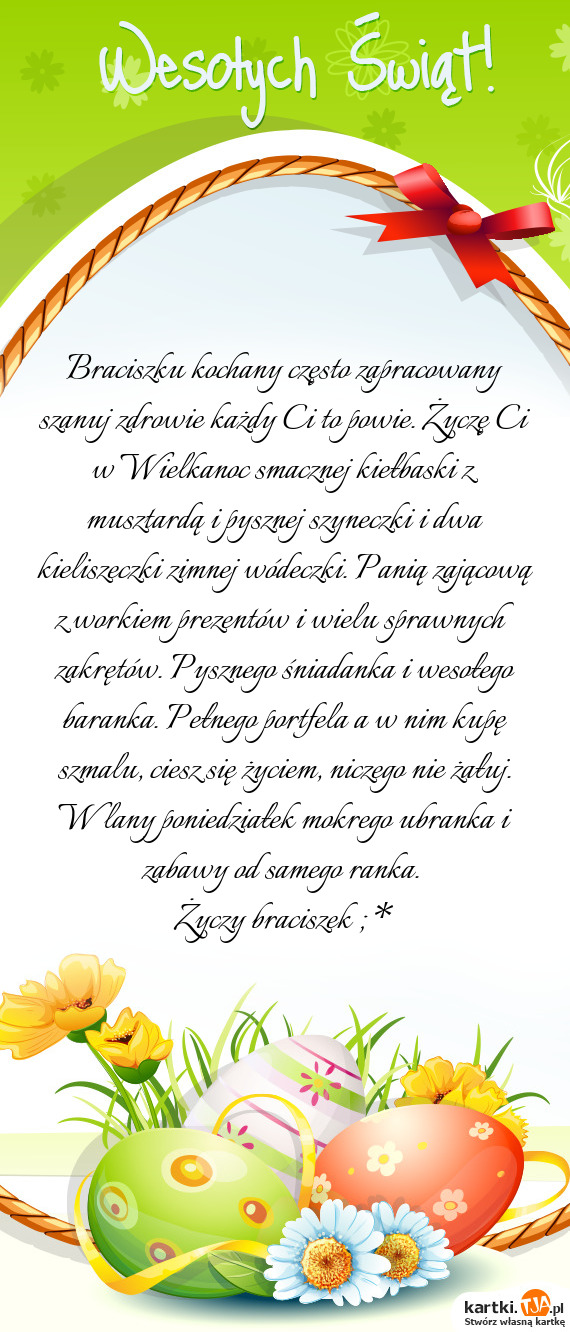 Wesołych Świąt!
Braciszku kochany często zapracowany
szanuj zdrowie każdy Ci to powie. Życzę Ci
w Wielkanoc smacznej kiełbaski z
musztardą i pysznej szyneczki i dwa
kieliszeczki zimnej wódeczki. Panią zającową
z workiem prezentów i wielu sprawnych
zakrętów. Pysznego śniadanka i wesołego
baranka. Pełnego portfela a w nim kupę
szmalu, ciesz się życiem, niczego nie żałuj.
W lany poniedziałek mokrego ubranka i
zabawy od samego ranka.
Życzy braciszek ; *
kartki.TJA.pl
Stwórz własną kartkę